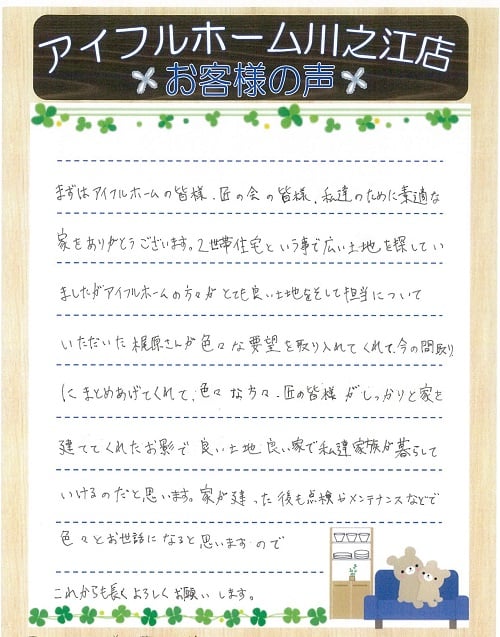 アイフルホーム川之江店
お客様の声
まずはアイフルホームの皆様、匠の会の皆様、私達のために素適な
家をありがとうございます。2世帯住宅という事で広い土地を探してい
ましたがアイフルホームの方々がとても良い土地をそして担当について
いただいた梶原さんが色々な要望を取り入れてくれて、今の間取り
にまとめあげてくれて、色々な方々・匠の皆様がしっかりと家を
建ててくれたお影で良い土地良い家で私達家族が暮らして
いけるのだと思います。家が建った後も点検やメンテナンスなどで
色々とお世話になると思いますので
これからも長くよろしくお願いします。